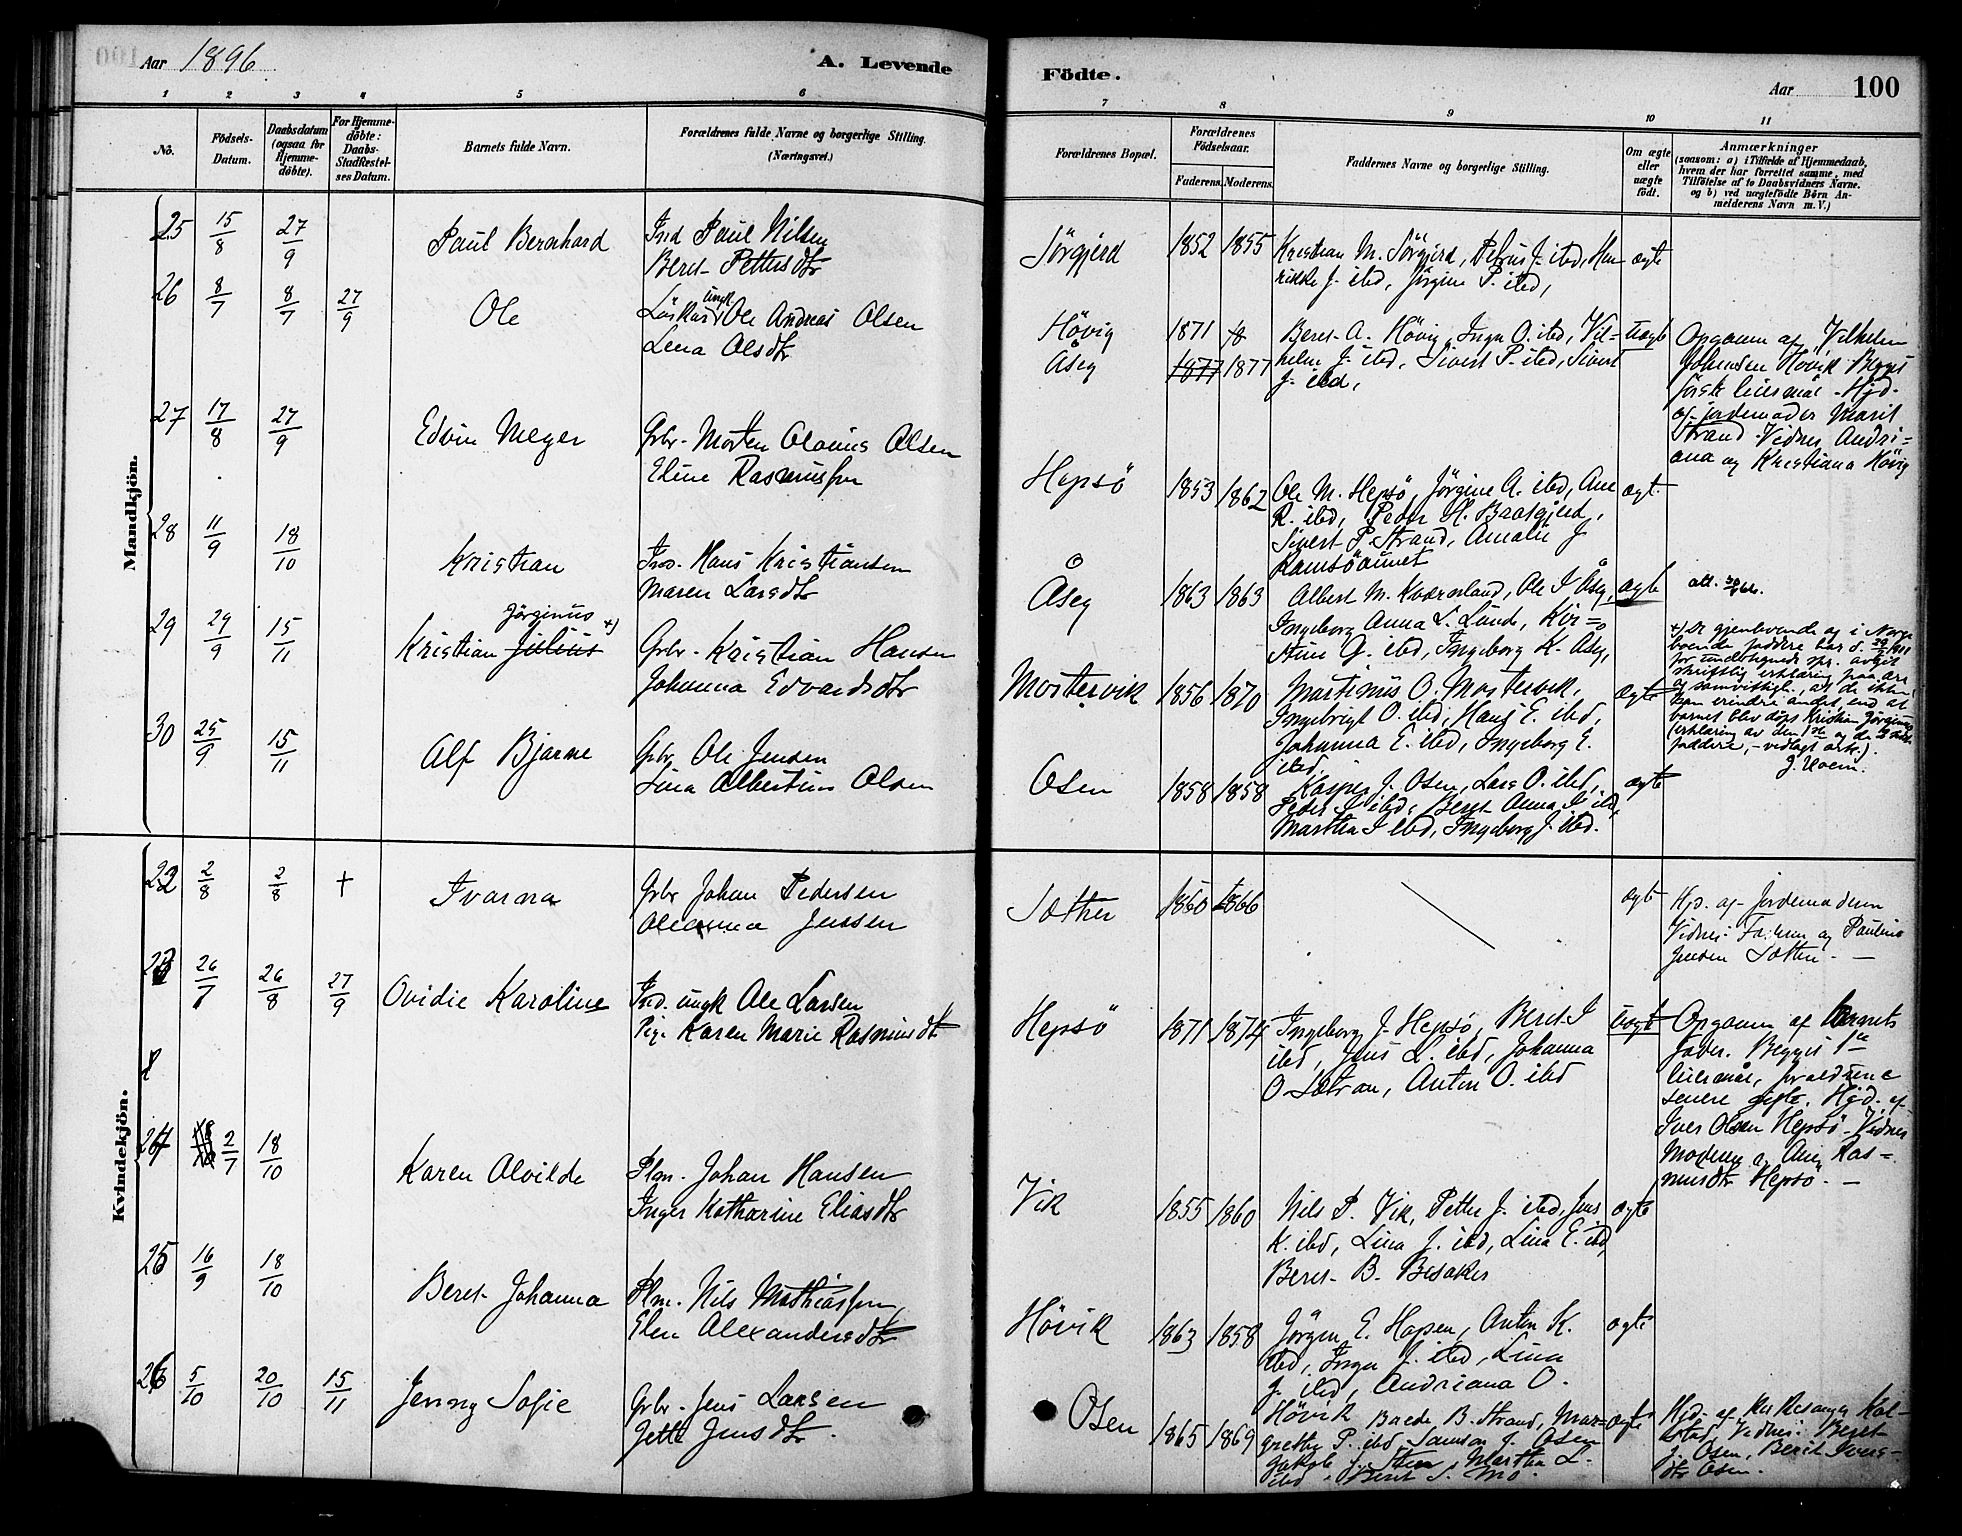 Aar 1896.
A. Levende
Födte.
Aar
100
1 2 3 4 5 6
7 8 9 10 11
No.
Födsels-
Datum.
Daabsdatum
(ogsaa for
Hjemme-
döbte).
For Hjemme-
döbte:
Daabs-
Stadfæstel-
ses Datum.
Barnets fulde Navn.
Forældrenes fulde Navne og borgerlige Stilling.
(Næringsvei.)
Forældrenes Bopæl.
Forældrenes
Födselsaar.
Faderens. Moderens.
Faddernes Navne og borgerlige Stilling.
Om ægte
eller
uægte
födt.
Anmærkninger
(saasom: a) i Tilfælde af Hjemmedaab,
hvem der har forrettet samme, med
Tilföielse af to Daabsvidners Navne.
og b) ved uægtefödte Börn An-
melderens Navn m. V.)
Mandkjön.
25 15/8 27/9 Paul Bernhard Ind Paul Nilsen
Beret Pettersdtr
Sörgjerd 1852 1855 Kristian M. Sörgjerd, Petrus J. ibd, Hen-
rikke J. ibd, Jörgine P. ibd, ægte
26 8/7 8/7 27/9 Ole
ungk
Löskar Ole Andreas Olsen
Lena Olsdtr
Hövig 1871
Åseg 1877 1877
Beret A. Hövig, Inga O. ibd, Vil-
helm J. ibd, Sivert P. ibd, Sivert
J. ibd,
uægte
Opgaven af Vilhelm
Johansen Hövik Begges
förste leiermål - Hjd.
af jordemoder Marit
Strand Vidner Andri-
ana og Kristiana Hövig
27 17/8 27/9 Edvin Meyer Grbr. Morten Olavius Olsen
Eline Rasmusson
Hepsö 1853 1862 Ole M. Hepsö, Jörgine A. ibd, Ane
R. ibd, Peder H. Baatgjerd,
Sivert P. Strand, Amalie J
Ramsöaunet
ægt.
28 11/9 18/10 Kristian Ind. Hans Kristiansen
Maren Larsdtr
Åseg 1863 1863 Albert M. Kværnland, Ole I Åseg,
Ingeborg Anna L. Lund, Kir-
stine G. ibd, Ingeborg K. Aseg,
ægte
29 29/9 15/11
Jörginus +)
Kristian Julius Grbr. Kristian Hansen
Johanna Edvardsdtr
Mostervik 1856 1870 Martinus O. Mostervik,
Ingebrigt O. ibd, Hans E. ibd,
Johanna E. ibd, Ingeborg E.
ibd
ægte
+) De gjenlevende og i Norge
boende faddere har d. 29/7 1911
for undertegnede spr. avgit
skriftlig erklæring paa ære
og samvittighet, at de ikke
kan erindre andet, end at
barnet blev döpt Kristian Jörginus
(erklæring av den 1ste og de
faddere, - vedlagt ark.).
J. Hoem.
30 25/9 15/11 Alf Bjarne Grbr. Ole Jensen
Lina Albertine Olsen
Osen 1858 1858 Kasper J. Osen, Lars O. ibd,
Peder J ibd, Beret Anna I ibd,
Martha I ibd, Ingeborg J. ibd.
ægte
Kvindekjön.
22 2/8 2/8 + Ivarna Grbr Johan Pedersen
Oleanna Jensen
Sætter 1860 1866
ægt Hjd. af Jordemoderen
Vidner: Faderen og Pauline
Jensen Sætter. —
23 26/7 26/8 27/9 Ovidie Karoline Ind. ungk Ole Larsen
Pige Karen Marie Rasmusdtr
Hepsö 1871 1874 Ingeborg J. Hepsö, Beret I
ibd, Jens L. ibd, Johanna
O Sætran, Anton O. ibd
uægte Opgaven af barnets
fader. Begges 1ste
leiermål, forældrene
senere gifte. Hjd. af
Iver Olsen Hepsö - Vidner
Moderen og Ane Ras-
musdtr Hepsö. —
24 2/7 18/10 Karen Alvilde Plm. Johan Hansen
Inger Katharine Eliasdtr
Vik 1855 1860 Nils P. Vik, Petter J. ibd, Jens
K. ibd, Lina J. ibd, Lina E. ibd,
Beret B. Besaker
ægte
25 16/9 18/10 Beret Johanna Plm. Nils Mathiasson,
Elen Alexandersdtr
Hövik 1863 1858 Jörgen E. Hopen, Anton K.
ibd, Inga J. ibd, Lina
J. ibd, Andriana O.
Hövik
ægte
26 5/10 20/10 15/11 Jenny Sofie Grbr. Jens Larsen
Jette Jensdtr.
Osen 1865 1869 B. Strand, Mar-
grethe P. ibd, Samson J. Osen
Jakob J. Sten, Martha L.
ibd, Beret S. Mo.
ægte Hjd. af Kirkesanger Kol-
stad, Vidner: Beret
J. Osen, Berit Ivers-
dtr Osen.